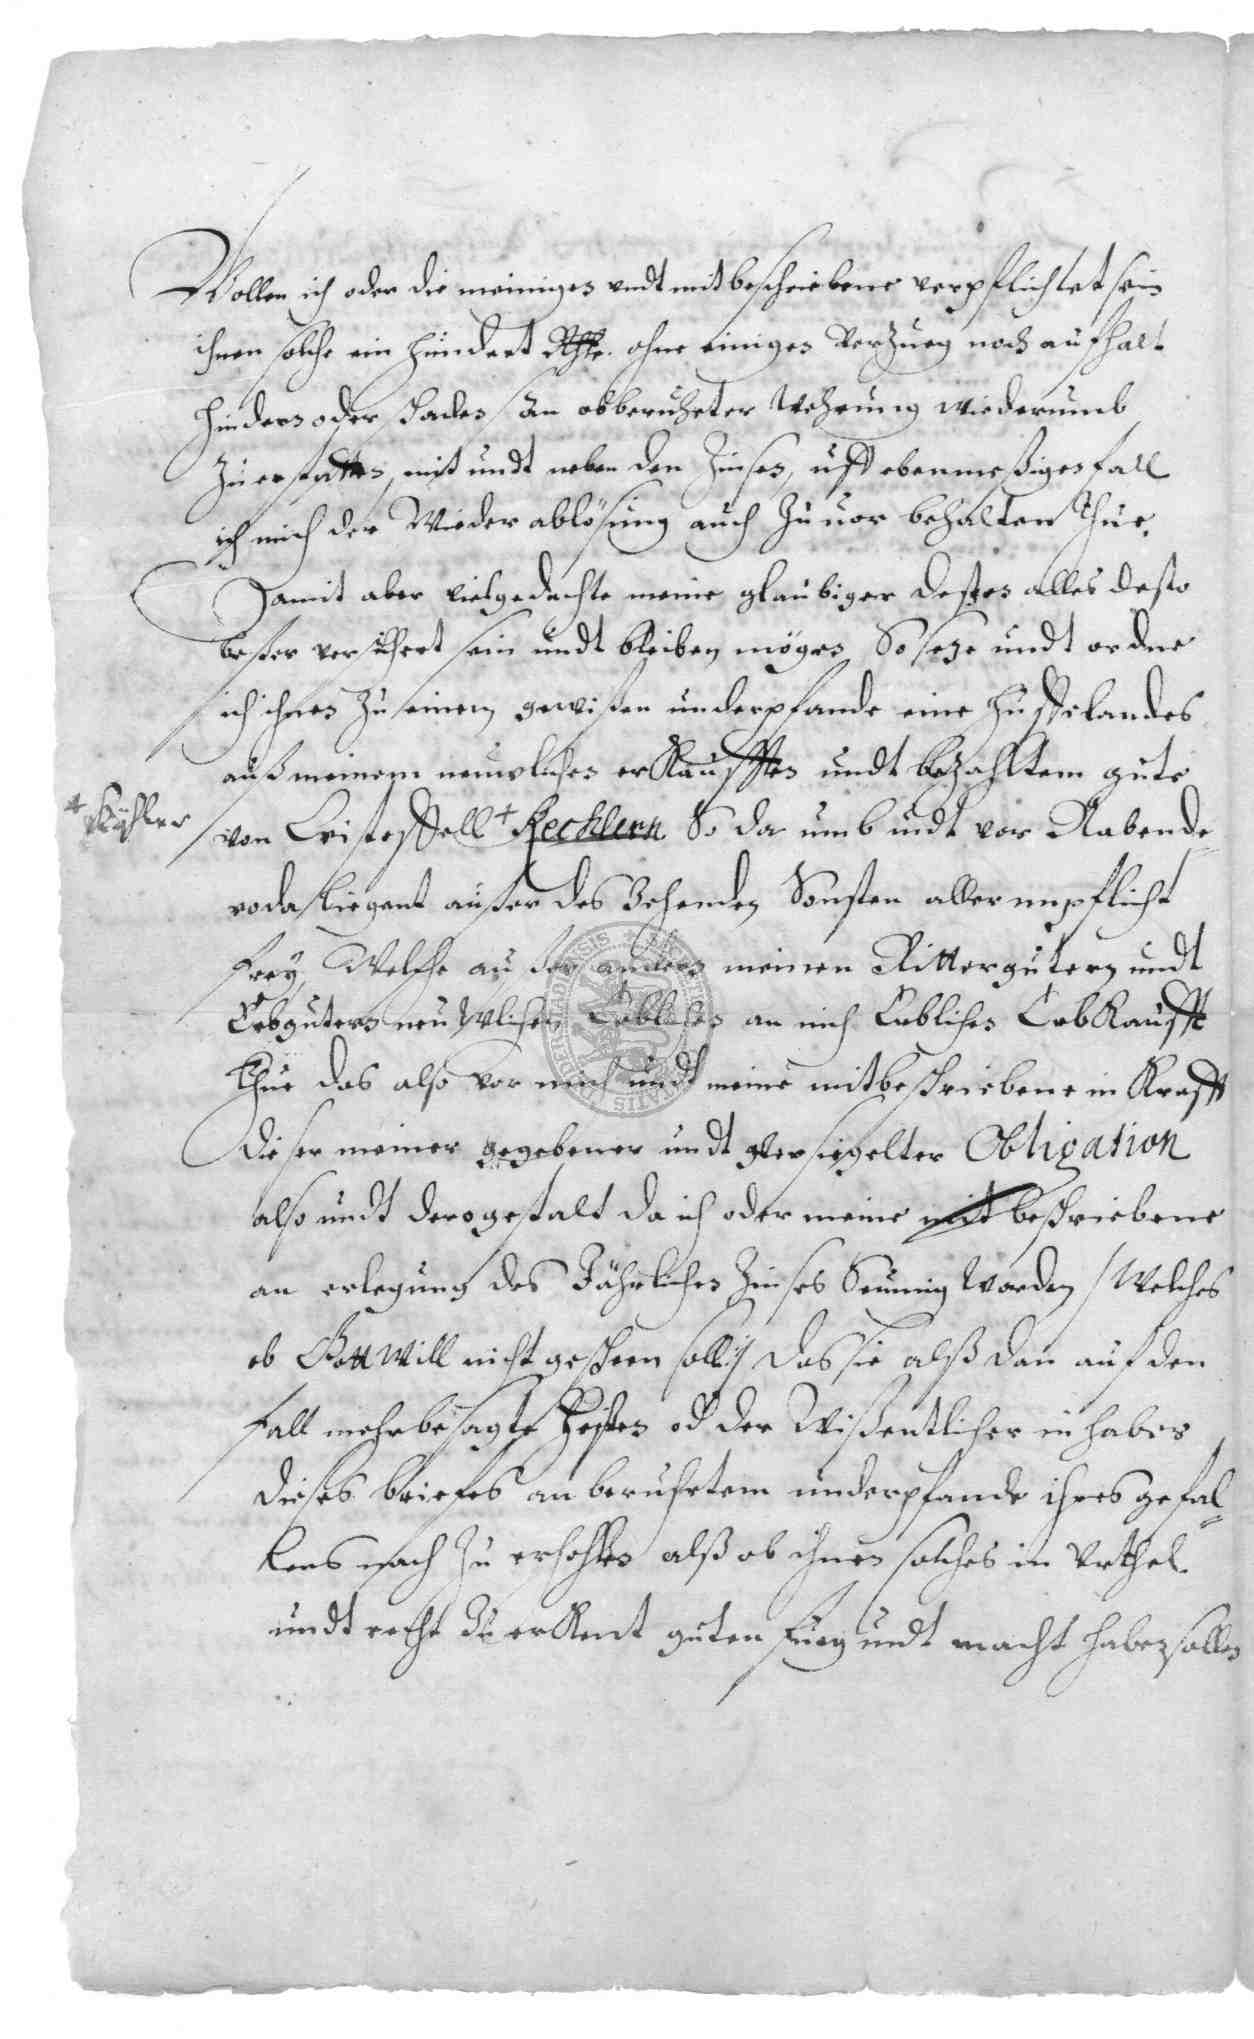 Wollen ich oder die meinigen undt mitbeschriebene verpflichtet sein
ihnen solche ein hundert Rthlr. ohne einigen Verzueg noch aufhalt
hinders oder schaden an obberuhrter Wehrung wiederumb
Zu erstatten, mit undt neben den Zinsen, uff ebenmeßigen fall
ich mich der Wieder ablösung auch zuuor behalten thue.
Damit aber vielgedachte meine glaubiger deßen alles desto
beßer versichert sein undt bleiben mögen So seze undt ordne
ich ihnen zu einem gewißen underpfande eine huffelandes
auß meinem neuwlichen erkaufften undt bezahltem gute
+ Kächler
von Cristoffell + Kechlern So da umb undt vor Rabende
roda liegent außer des Zehenden Sonsten aller unpflicht
frey, Welche meinen Rittergutern undt
Erbgutern neuwlichen an mich Erbliches Erbkaufft
thue das also vor mich undt meine mitbeschriebene in krafft
dieser meiner gegebener undt versiegelter Obligation
also undt derogestalt da ich oder meine mit beschriebene
an erlegung des Jährlichen Zinses Seumig worden / Welches
ob Gott will nicht gescheen soll / das sie alß dan auf den
fall mehrbesagte od der Wißentlicher inhaber
dieses briefes an beruhrtem underpfande ihres gefal
lens nach zu erhohlen alß ob ihnen solches in Urthel
undt recht zu erkent guten fueg undt macht haben sollen